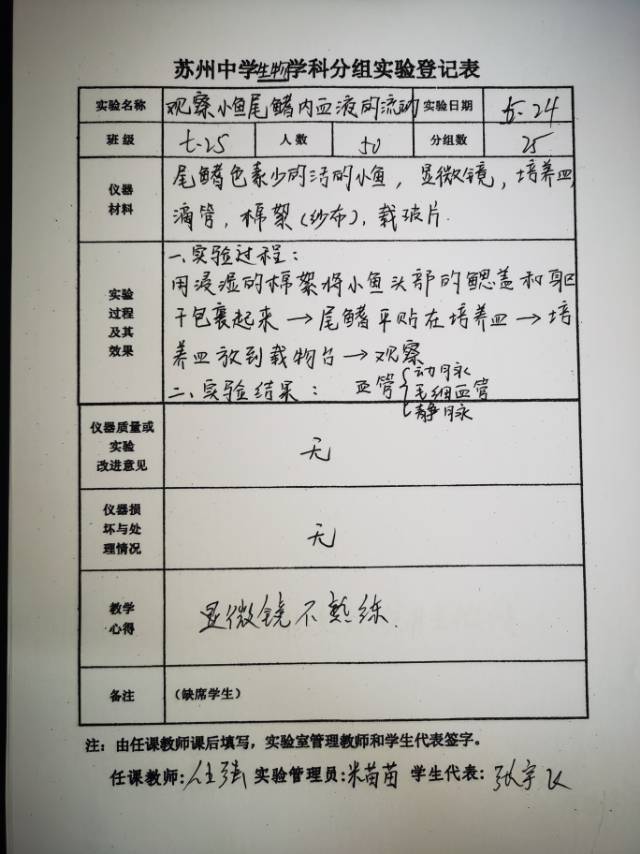 苏州中学生物学科分组实验登记表
实验名称 观察小鱼尾鳍内血液的流动 实验日期 5.24
班级 七-25 人数 50 分组数 25
仪器材料 尾鳍色素少的活的小鱼，显微镜，培养皿
滴管，棉絮（纱布），载玻片.
实验过程及其效果 一、实验过程：
用浸湿的棉絮将小鱼头部的鳃盖和躯
干包裹起来→尾鳍平贴在培养皿→培
养皿放到载物台→观察
二、实验结果： 血管{动脉
毛细血管
静脉
仪器质量或实验改进意见 无
仪器损坏与处理情况 无
教学心得 显微镜不熟练.
备注 （缺席学生）
注：由任课教师课后填写，实验室管理教师和学生代表签字。
任课教师: 任强 实验管理员: 米苗苗 学生代表: 张宇